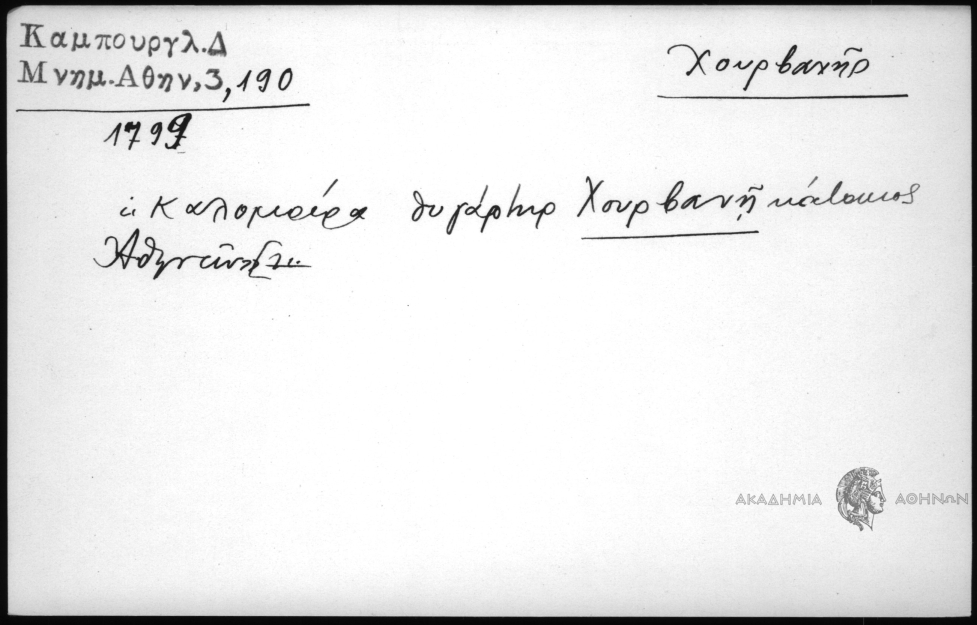 Καμπουργλ.Δ
Μνημ.Αθην,3,190
Χουρβανῆς
1799
ἡ Καλομοίρα θυγάτηρ Χουρβανῆ κάτοικος
ΑΚΑΔΗΜΙΑ ΑΘΗΝΩΝ